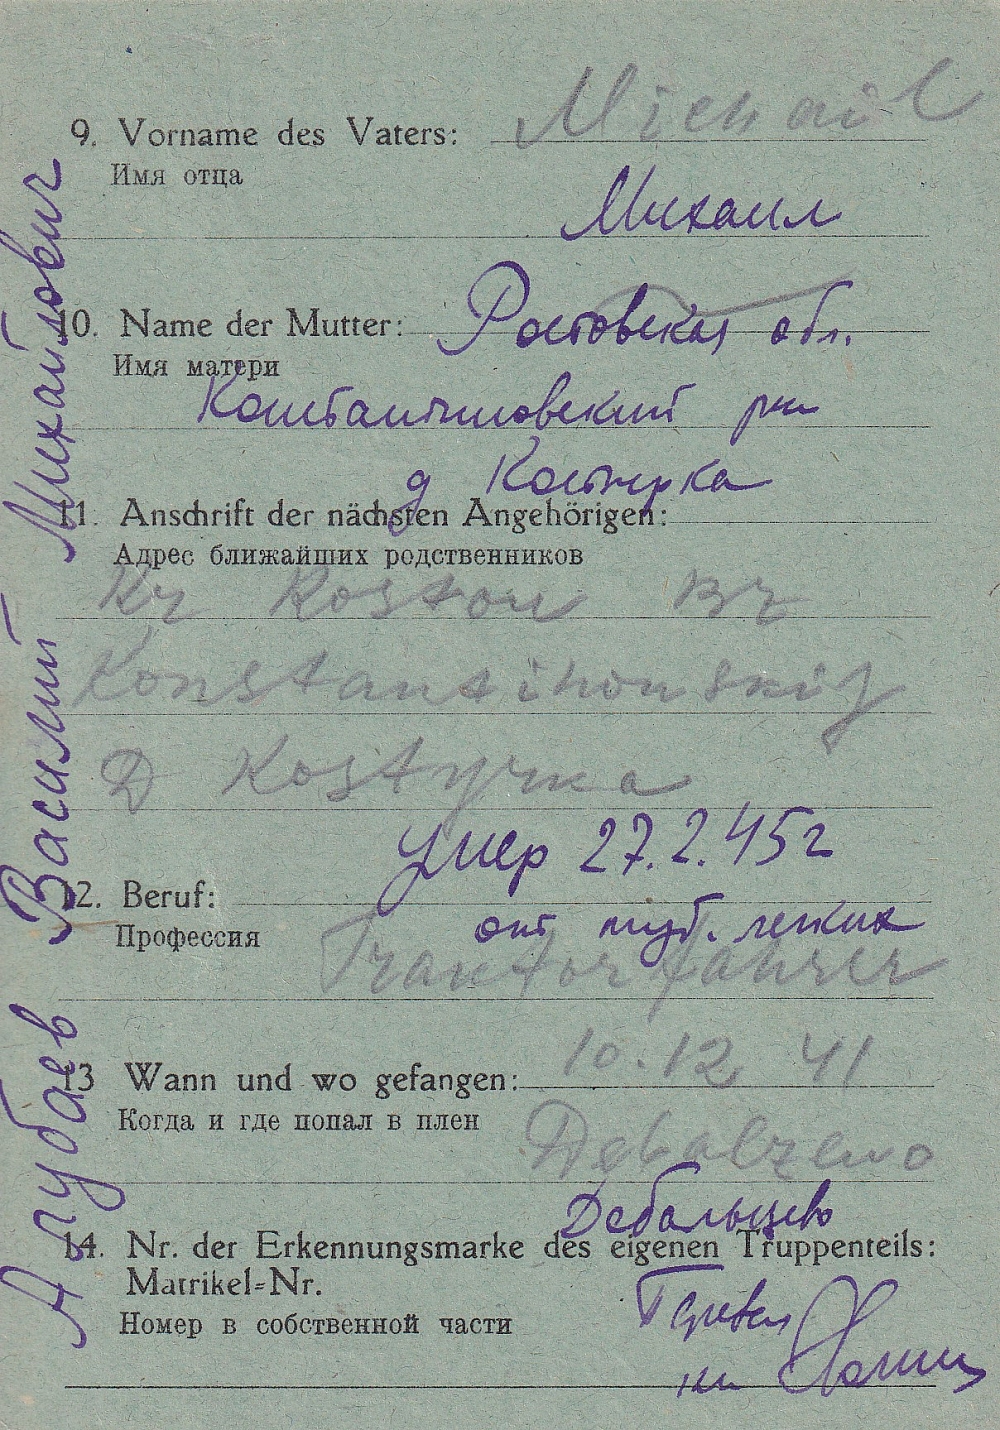 9. Vorname des Vaters: Michail
Имя отца
Михаил
10. Name der Mutter: Ростовская обл.
Имя матери
Константиновский рн
д Костырка
11. Anschrift der nächsten Angehörigen:
Адрес ближайших родственников
Kr Rostow Br
Konstantinowskij
D Kostyrka
умер 27.2.45г
12. Beruf:
от туб. легких
Профессия
Traktorfahrer
13 Wann und wo gefangen: 10.12 41
Когда и где попал в плен
Debalzewo
Дебальцево
14. Nr. der Erkennungsmarke des eigenen Truppenteils:
Matrikel-Nr.
Номер в собственной части
Перевел
Василий Михайлович